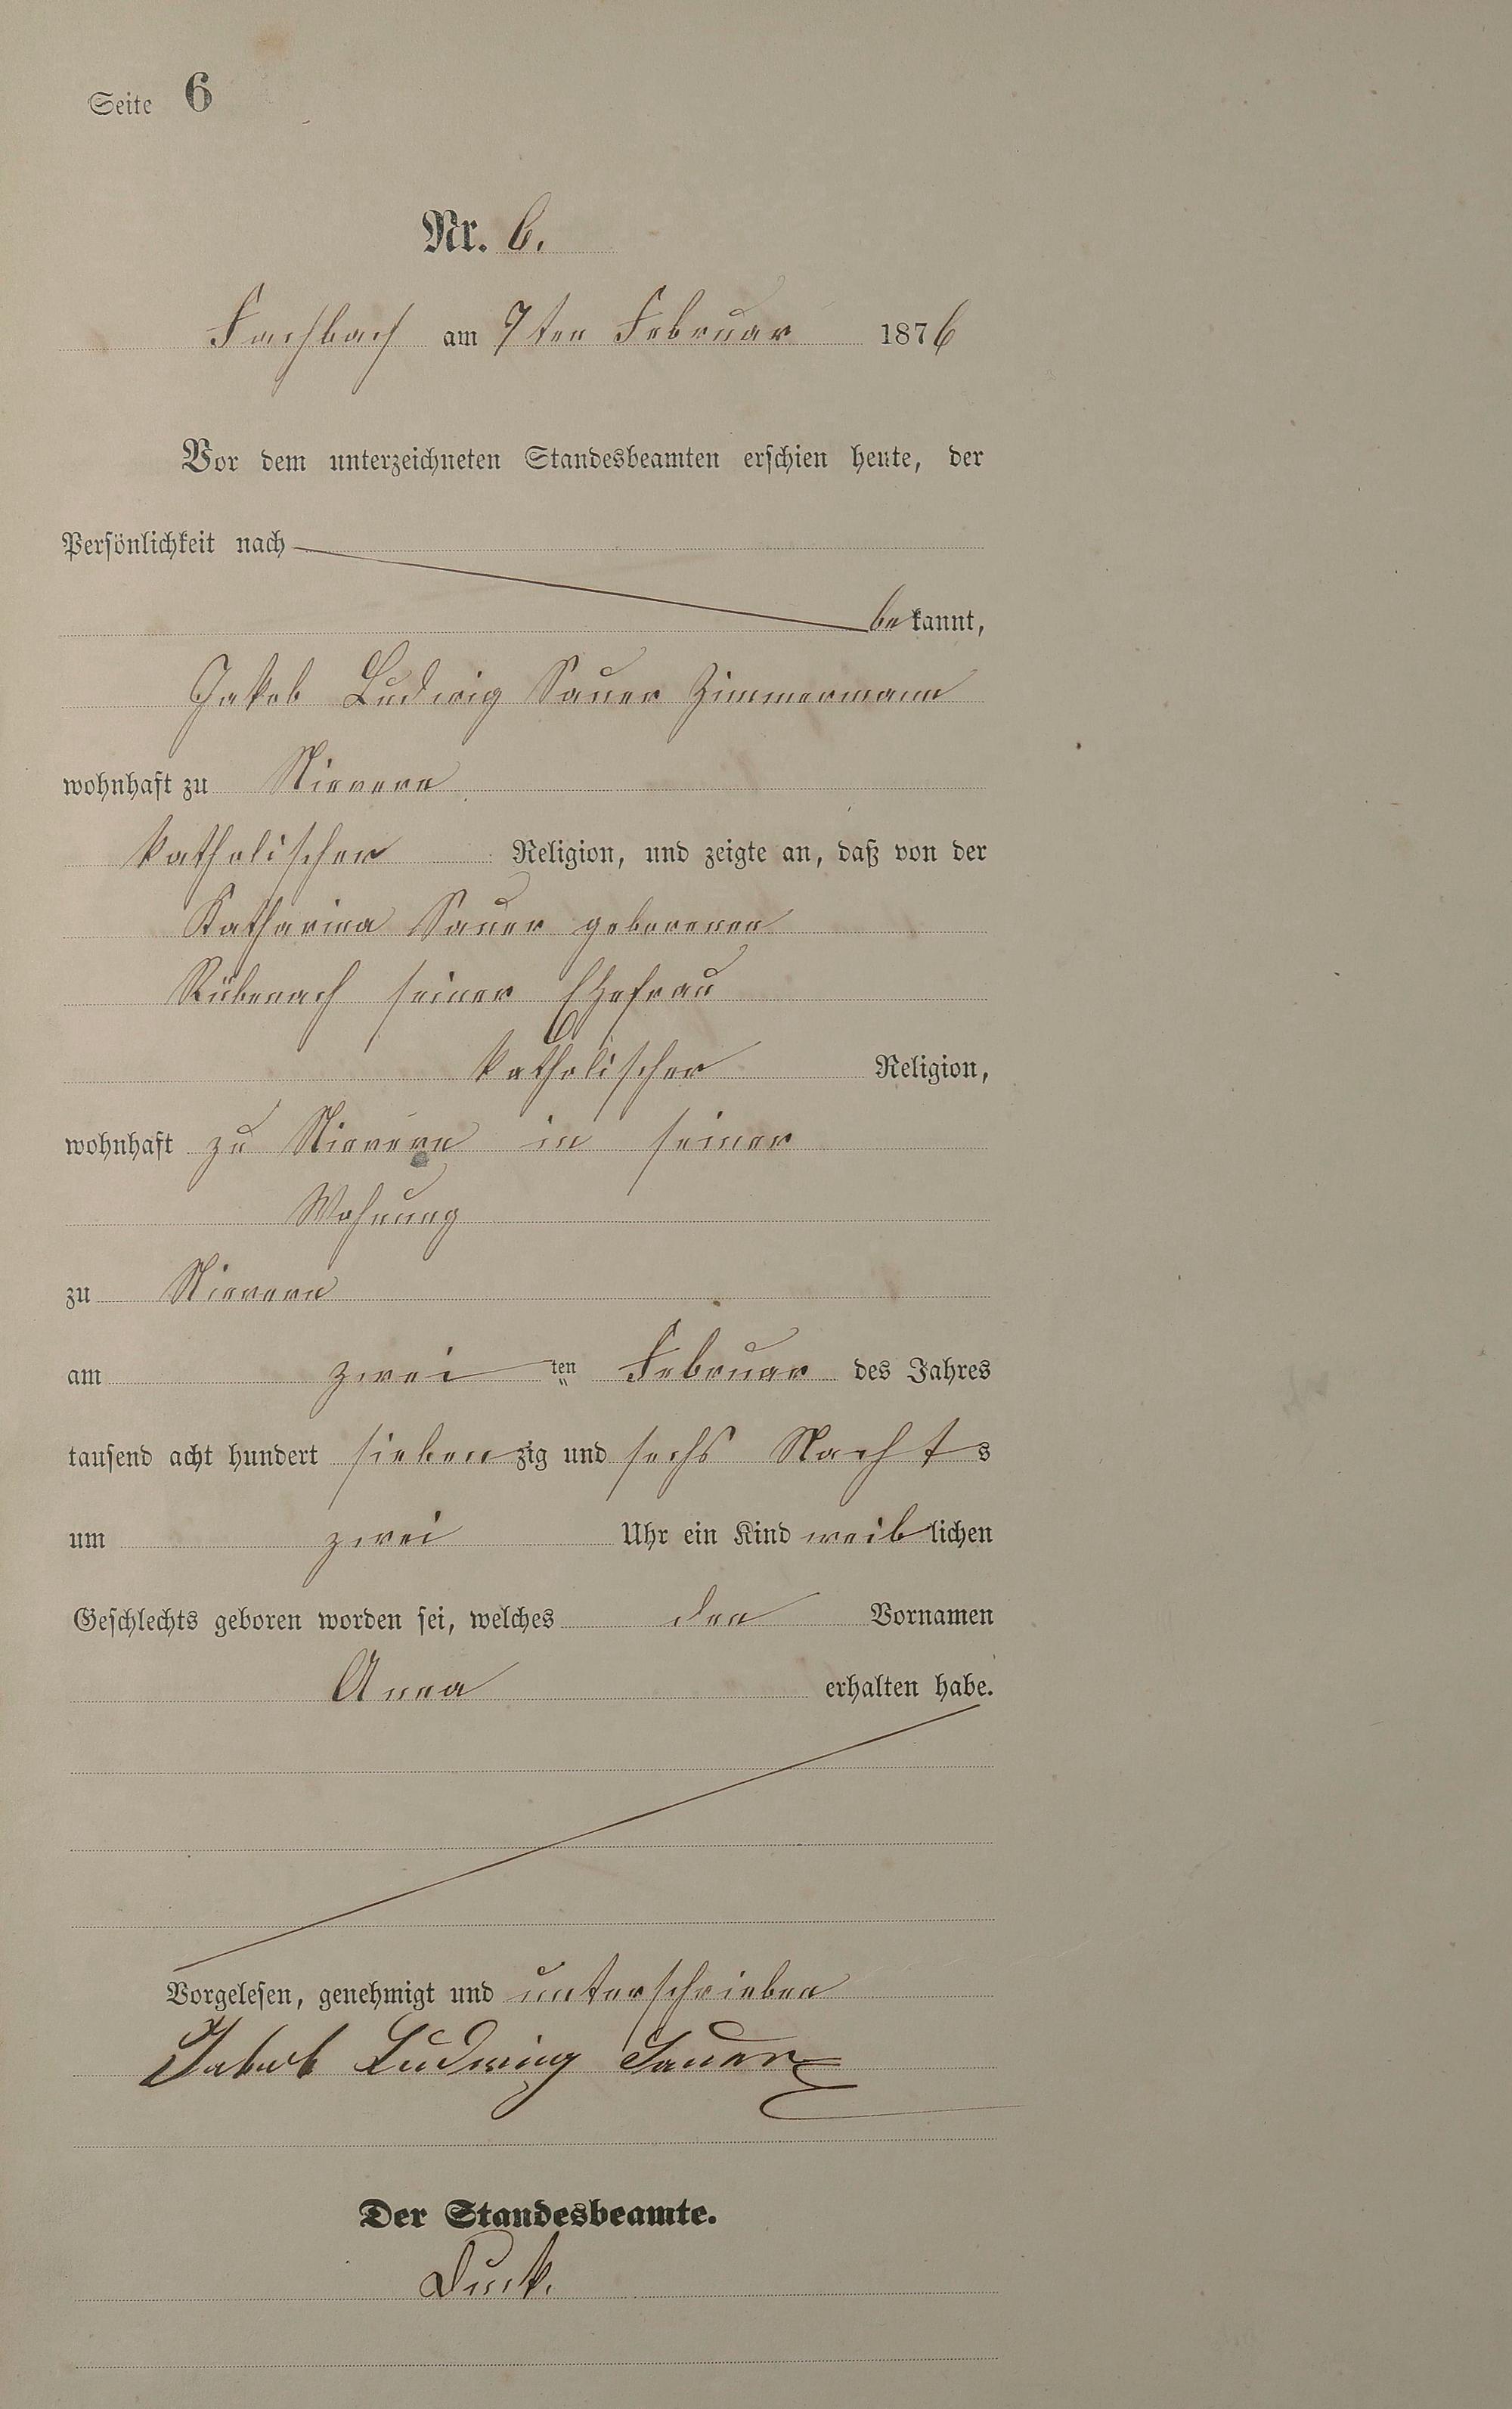 Seite 6
Nr. 6.
Fachbach am 7ten Februar 1876
Vor dem unterzeichneten Standesbeamten erschien heute, der
Persönlichkeit nach
bekannt,
Jakob Ludwig Sauer Zimmermann
wohnhaft zu Nievern
katholischer Religion, und zeigte an, daß von der
Katharina Sauer geborenen
Rübenach seiner Ehefrau
katholischer Religion,
wohnhaft zu Nievern in seiner
Wohnung
zu Nievern
am zwei ten Februar des Jahres
tausend acht hundert siebenzig und sechs Nachts
um zwei Uhr ein Kind weiblichen
Geschlechts geboren worden sei, welches den Vornamen
Anna erhalten habe.
Vorgelesen, genehmigt und unterschrieben
Jakob Ludwig Sauer
Der Standesbeamte.